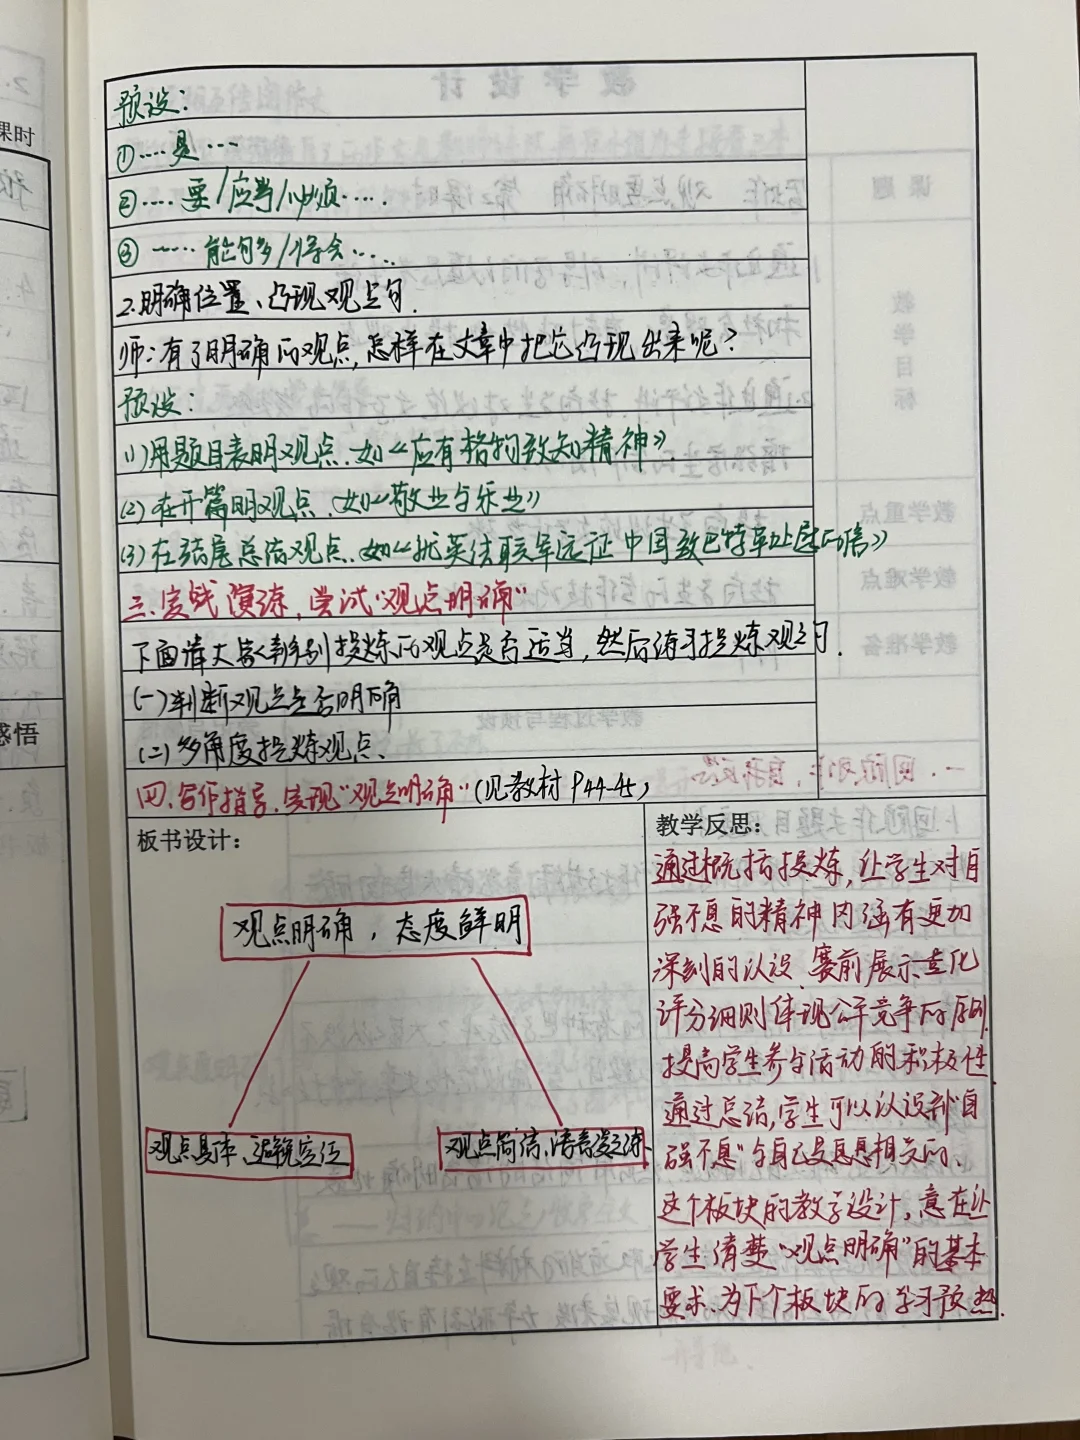 预设：
①····是···
②····要/应当/必须·····
③·····能够/将会····
2.明确位置、凸现观点句.
师：有了明确的观点,怎样在文章中把它凸现出来呢?
预设：
(1)用题目表明观点.如《应有格物致知精神》
(2)在开篇明观点.如《敬业与乐业》
(3)在结尾总结观点.如《就英法联军远征中国致巴特勒上尉的信》
三.实战演练,尝试"观点明确"
下面请大家判别提炼的观点是否适当,然后练习提炼观点句.
(一)判断观点是否明确
(二)多角度提炼观点.
四.写作指导.实现"观点明确"(见教材P44-45)
板书设计：
观点明确，态度鲜明
观点具体、避免空泛
观点简洁、语言凝练
教学反思：
通过概括提炼,让学生对自
强不息的精神内涵有更加
深刻的认识.赛前展示量化
评分细则体现公平竞争的原则.
提高学生参与活动的积极性
通过总结,学生可以认识到"自
强不息"与自己是息息相关的.
这个板块的教学设计,意在让
学生清楚"观点明确"的基本
要求.为下个板块的学习预热.
课时
感悟